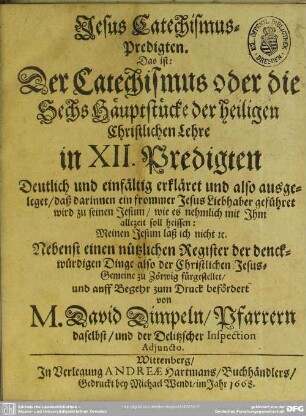 Jesus Catechismus-
Predigten.
Das ist:
Der Catechismus oder die
Sechs Häuptstücke der heiligen
Christlichen Lehre
in XII. Predigten
Deutlich und einfältig erkläret und also ausge-
leget/ daß darinnen ein frommer Jesus Liebhaber geführet
wird zu seinen Jesum/ wie es nehmlich mit Ihm
allezeit soll heissen:
Meinen Jesum laß ich nicht ꝛc.
Nebenst einen nützlichen Register der denck-
würdigen Dinge also der Christlichen Jesus-
Gemeine zu Zörwig fürgestellet/
und auff Begehr zum Druck befördert
von
M. David Dümpeln/ Pfarrern
daselbst/ und der Delitzscher Inspection
Adjuncto.
Wittenberg/
In Verlegung ANDREÆ Hartmans/ Buchhändlers/
Gedruckt bey Michael Wendt/ im Jahr 1668.